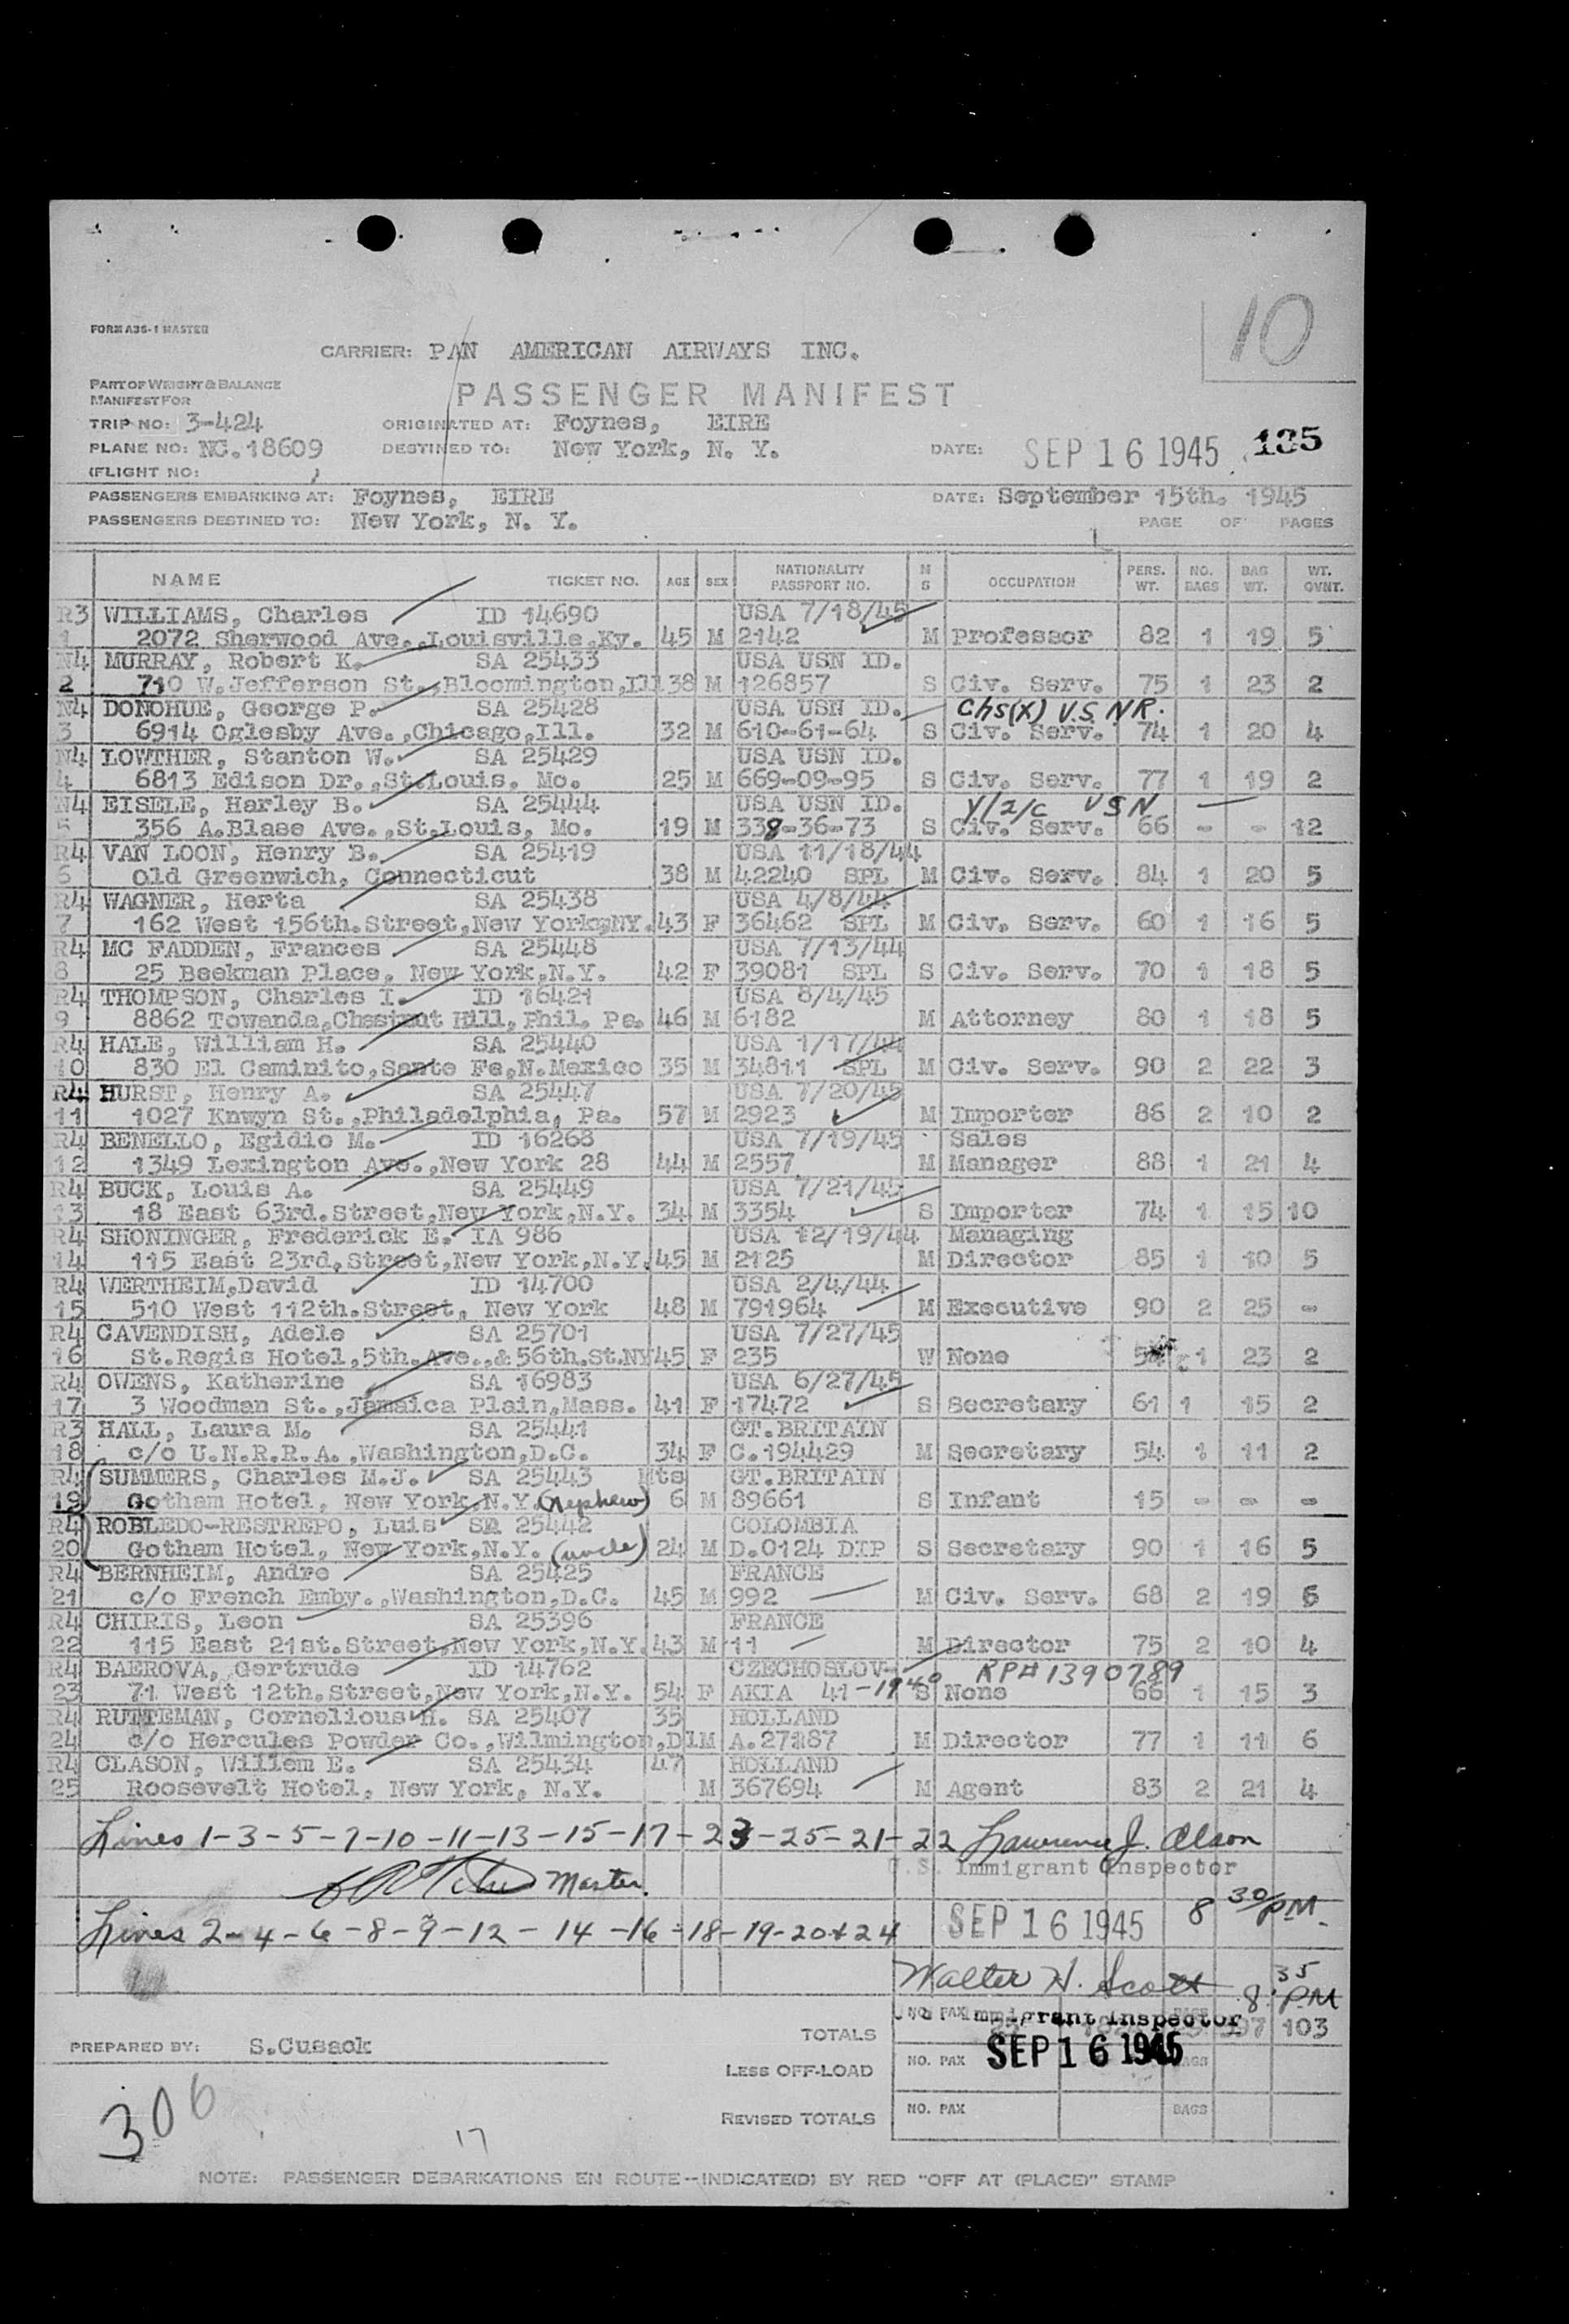 10
FORM A36-1 MASTER
CARRIER: PAN AMERICAN AIRWAYS INC.
PART OF WEIGHT & BALANCE
MANIFEST FOR
PASSENGER MANIFEST
TRIP NO: 3-424 ORIGINATED AT: Foynes, EIRE
PLANE NO: NC.18609 DESTINED TO: New York, N. Y. DATE: SEP 16 1945 135
(FLIGHT NO: )
PASSENGERS EMBARKING AT: Foynes, EIRE DATE: September 15th. 1945
PASSENGERS DESTINED TO: New York, N. Y. PAGE OF PAGES
NAME TICKET NO. AGE SEX NATIONALITY PASSPORT NO. M S OCCUPATION PERS. WT. NO. BAGS BAG WT. WT. OVNT.
R3 WILLIAMS, Charles ID 14690 USA 7/18/45
1 2072 Sherwood Ave.,Louisville,Ky. 45 M 2142 M Professor 82 1 19 5
N4 MURRAY, Robert K. SA 25433 USA USN ID.
2 710 W.Jefferson St.,Bloomington,Ill 38 M 126857 S Civ. Serv. 75 1 23 2
N4 DONOHUE, George P. SA 25428 USA USN ID. Chs(X) U.S.N.R.
3 6914 Oglesby Ave.,Chicago,Ill. 32 M 610-61-64 S Civ. Serv. 74 1 20 4
N4 LOWTHER, Stanton W. SA 25429 USA USN ID.
4 6813 Edison Dr.,St.Louis, Mo. 25 M 669-09-95 S Civ. Serv. 77 1 19 2
N4 EISELE, Harley B. SA 25444 USA USN ID. Y/2/c USN
5 356 A.Blase Ave.,St.Louis, Mo. 19 M 338-36-73 S Civ. Serv. 66 - - 12
R4 VAN LOON, Henry B. SA 25419 USA 11/18/44
6 Old Greenwich, Connecticut 38 M 42240 SPL M Civ. Serv. 84 1 20 5
R4 WAGNER, Herta SA 25438 USA 4/8/44
7 162 West 156th.Street,New York,NY. 43 F 36462 SPL M Civ. Serv. 60 1 16 5
R4 MC FADDEN, Frances SA 25448 USA 7/13/44
8 25 Beekman Place, New York,N.Y. 42 F 39081 SPL S Civ. Serv. 70 1 18 5
R4 THOMPSON, Charles I. ID 16421 USA 8/4/45
9 8862 Towanda,Chestnut Hill, Phil. Pa. 46 M 6182 M Attorney 80 1 18 5
R4 HALE, William H. SA 25440 USA 1/17/44
10 830 El Caminito,Sante Fe,N.Mexico 35 M 34811 SPL M Civ. Serv. 90 2 22 3
R4 HURST, Henry A. SA 25447 USA 7/20/45
11 1027 Knwyn St.,Philadelphia, Pa. 57 M 2923 M Importer 86 2 10 2
R4 BENELLO, Egidio M. ID 16268 USA 7/19/45 Sales
12 1349 Lexington Ave.,New York 28 44 M 2557 M Manager 88 1 21 4
R4 BUCK, Louis A. SA 25449 USA 7/21/45
13 18 East 63rd.Street,New York,N.Y. 34 M 3354 S Importer 74 1 15 10
R4 SHONINGER, Frederick E. IA 986 USA 12/19/44 Managing
14 115 East 23rd,Street,New York,N.Y. 45 M 2125 M Director 85 1 10 5
R4 WERTHEIM,David ID 14700 USA 2/4/44
15 510 West 112th.Street, New York 48 M 791964 M Executive 90 2 25 -
R4 CAVENDISH, Adele SA 25701 USA 7/27/45
16 St.Regis Hotel,5th.Ave.,&56th.St.NY 45 F 235 W None 1 23 2
R4 OWENS, Katherine SA 16983 USA 6/27/45
17 3 Woodman St.,Jamaica Plain,Mass. 41 F 17472 S Secretary 61 1 15 2
R3 HALL, Laura M. SA 25441 GT.BRITAIN
18 c/o U.N.R.R.A.,Washington,D.C. 34 F C.194429 M Secretary 54 1 11 2
R4 SUMMERS, Charles M.J. SA 25443 Mts GT.BRITAIN
19 Gotham Hotel, New York,N.Y. (nephew) 6 M 89661 S Infant 15 - - -
R4 ROBLEDO-RESTREPO, Luis SA 25442 COLOMBIA
20 Gotham Hotel, New York,N.Y. (uncle) 24 M D.0124 DIP S Secretary 90 1 16 5
R4 BERNHEIM, Andre SA 25425 FRANCE
21 c/o French Emby.,Washington,D.C. 45 M 992 M Civ. Serv. 68 2 19 6
R4 CHIRIS, Leon SA 25396 FRANCE
22 115 East 21st.Street,New York,N.Y. 43 M 11 M Director 75 2 10 4
R4 BAEROVA, Gertrude ID 14762 CZECHOSLOV- RPH 1390789
23 71 West 12th.Street,New York,N.Y. 54 F AKIA 41-1940 S None 66 1 15 3
R4 RUTTEMAN, Cornelious H. SA 25407 35 HOLLAND
24 c/o Hercules Powder Co.,Wilmington,Dl M A.27187 M Director 77 1 11 6
R4 CLASON, Willem E. SA 25434 47 HOLLAND
25 Roosevelt Hotel, New York, N.Y. M 367694 M Agent 83 2 21 4
Lines 1-3-5-7-10-11-13-15-17-23-25-21-22 Lawrence J. Olson
U.S. Immigrant Inspector
Master.
SEP 16 1945 8 30/PM.
Lines 2-4-6-8-9-12-14-16-18-19-20+24
Walter H. Scott 8:35 PM
Immigrant Inspector
TOTALS NO. PAX 103
PREPARED BY: S.Cusack
SEP 16 1945
LESS OFF-LOAD NO. PAX BAGS
REVISED TOTALS NO. PAX BAGS
306
17
NOTE: PASSENGER DEBARKATIONS EN ROUTE--INDICATE(D) BY RED "OFF AT (PLACE)" STAMP